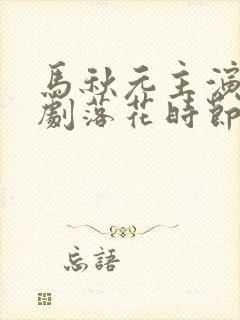 馬秋元主演
劇落花時節
忘語